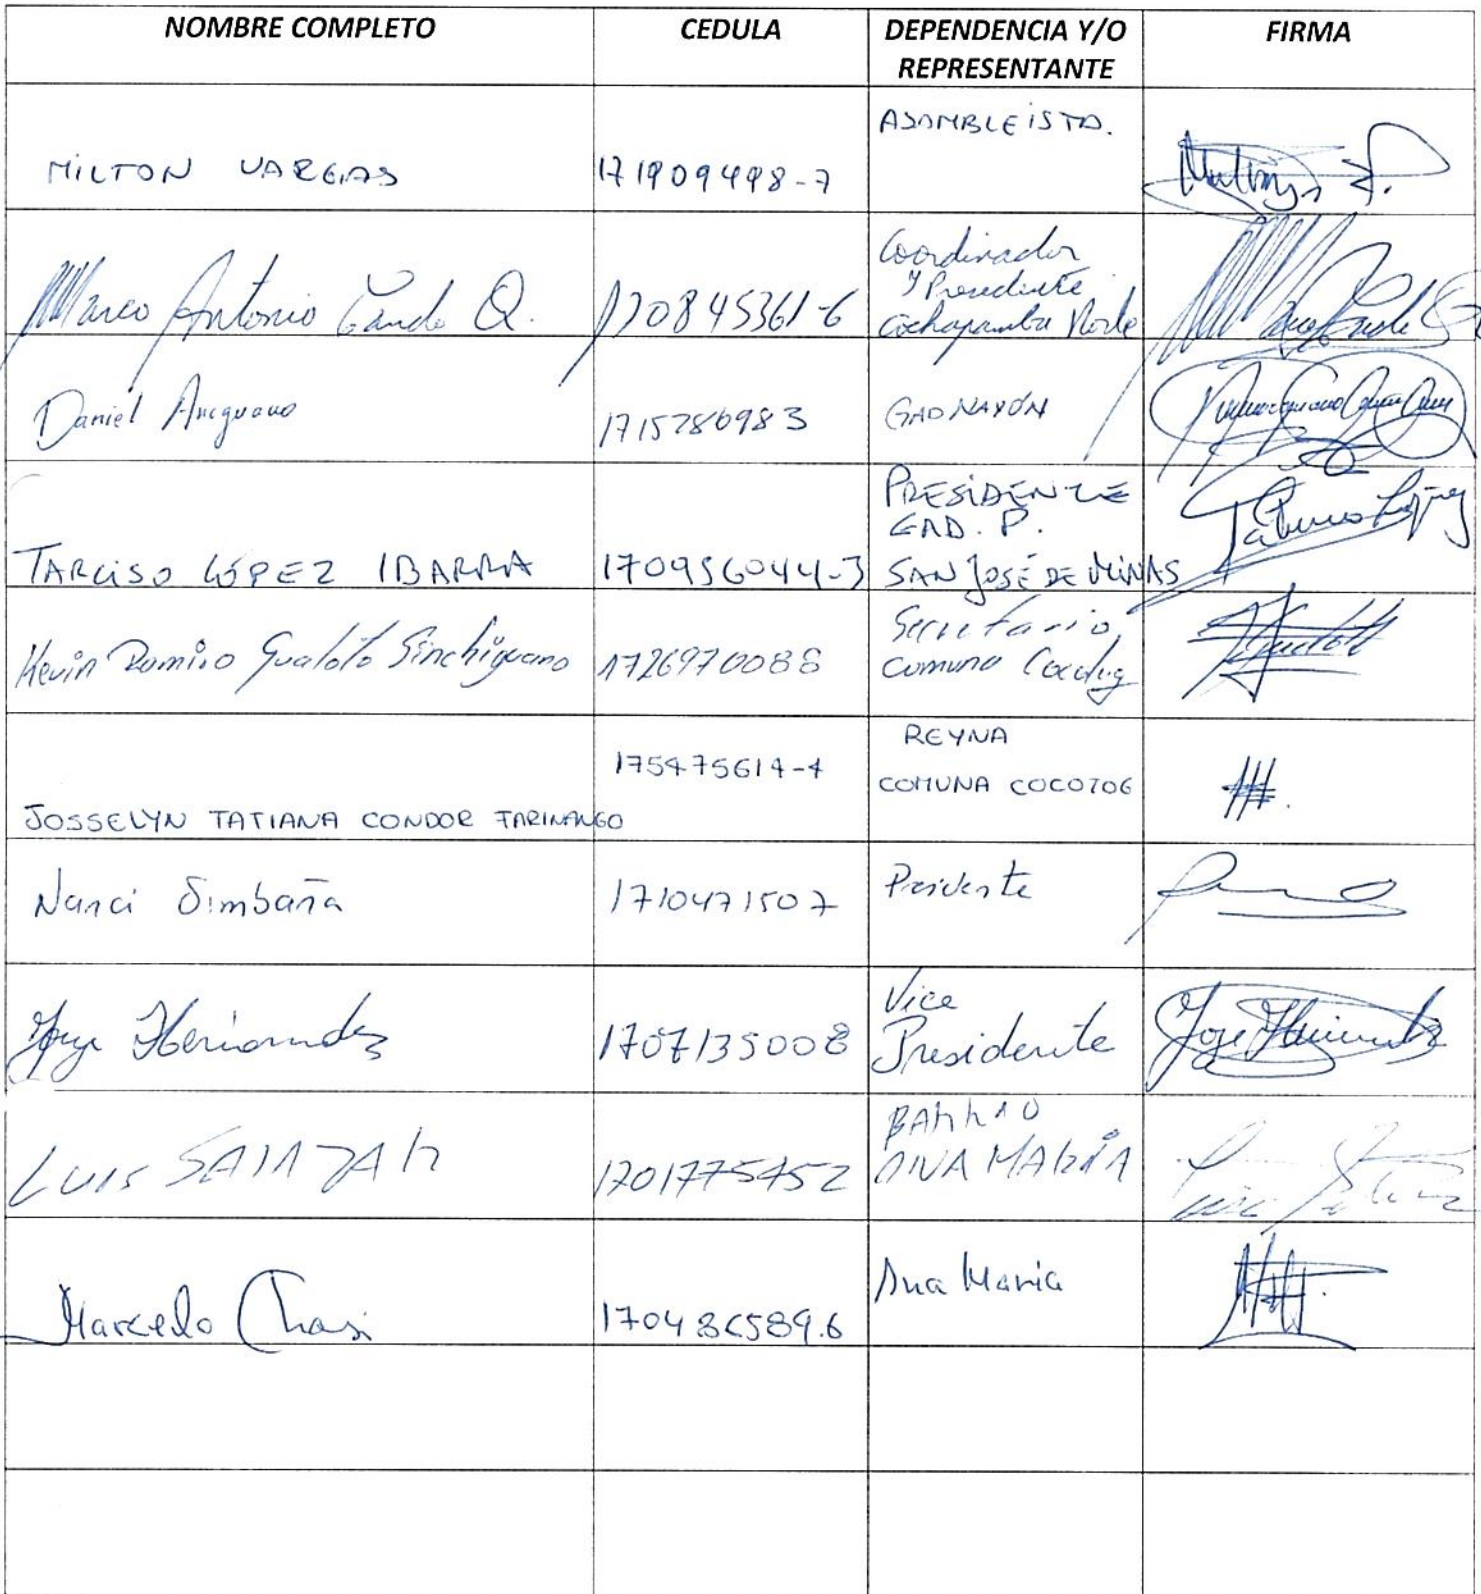 NOMBRE COMPLETO CEDULA DEPENDENCIA Y/O REPRESENTANTE FIRMA
MILTON VARGAS 171909498-7 ASAMBLEISTA.
Marco Antonio Cando Q. 170845361-6 Coordinador
Y Presidente
Cochapamba Norte
Daniel 1715786983 GAD NAYÓN
TARCISO LÓPEZ IBARRA 170956044-3 PRESIDENTE
GAD. P.
SAN JOSÉ DE MINAS
Kevin Ramiro Gualoto Sinchiguano 1726970088 Secretario,
Comuna
JOSSELYN TATIANA CONDOR TARINANGO 175475614-4 REYNA
COMUNA COCOTOG
Narci Simbaña 1710471507 Presidente
Jorge Hernandez 1707135008 Vice
Presidente
LUIS SALAZAR 1701775452 BARRIO
ANA MARÍA
Marcelo Chasi Ana Maria